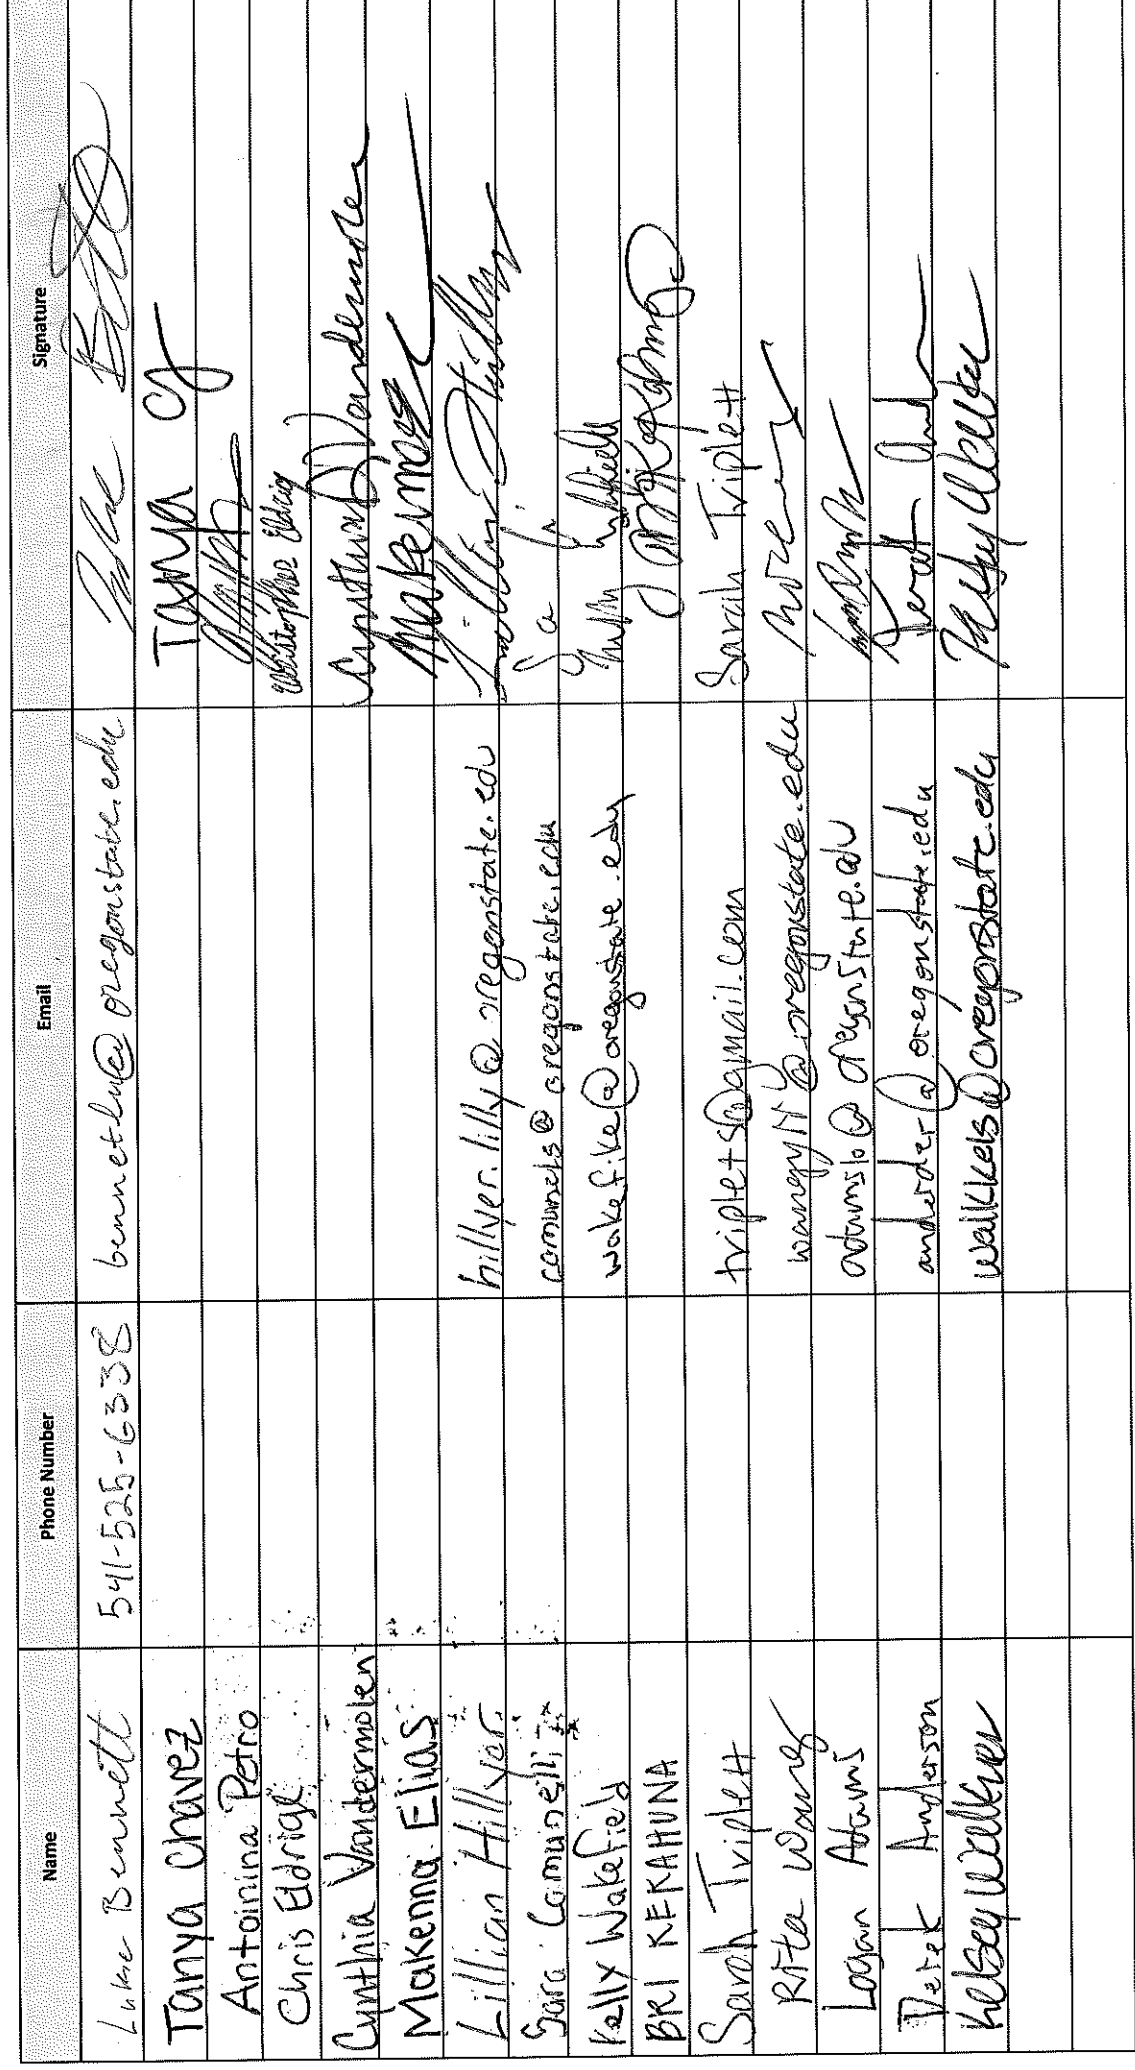 Name Phone Number Email Signature
Luke Bennett 541-525-6338 bennetlu@oregonstate.edu
Tanya Chavez Tanya
Antoinina Petro
Chris Eldrige Christopher
Cynthia Vandermolen Cynthia Vandermolen
Makenna Elias
Lillian Hillyer hillyer.lilly@oregonstate.edu Lillian Hillyer
Sara Comunelli comunels@oregonstate.edu
Kelly Wakefield wakefike@oregonstate.edu
BRI KEKAHUNA
Sarah Triplett triplets@gmail.com Sarah Triplett
Rita Wang @oregonstate.edu
Logan Adams adamslo@oregonstate.edu
Derek Anderson anderder@oregonstate.edu
Kelsey Walker walkkels@oregonstate.edu Kelsey Walker